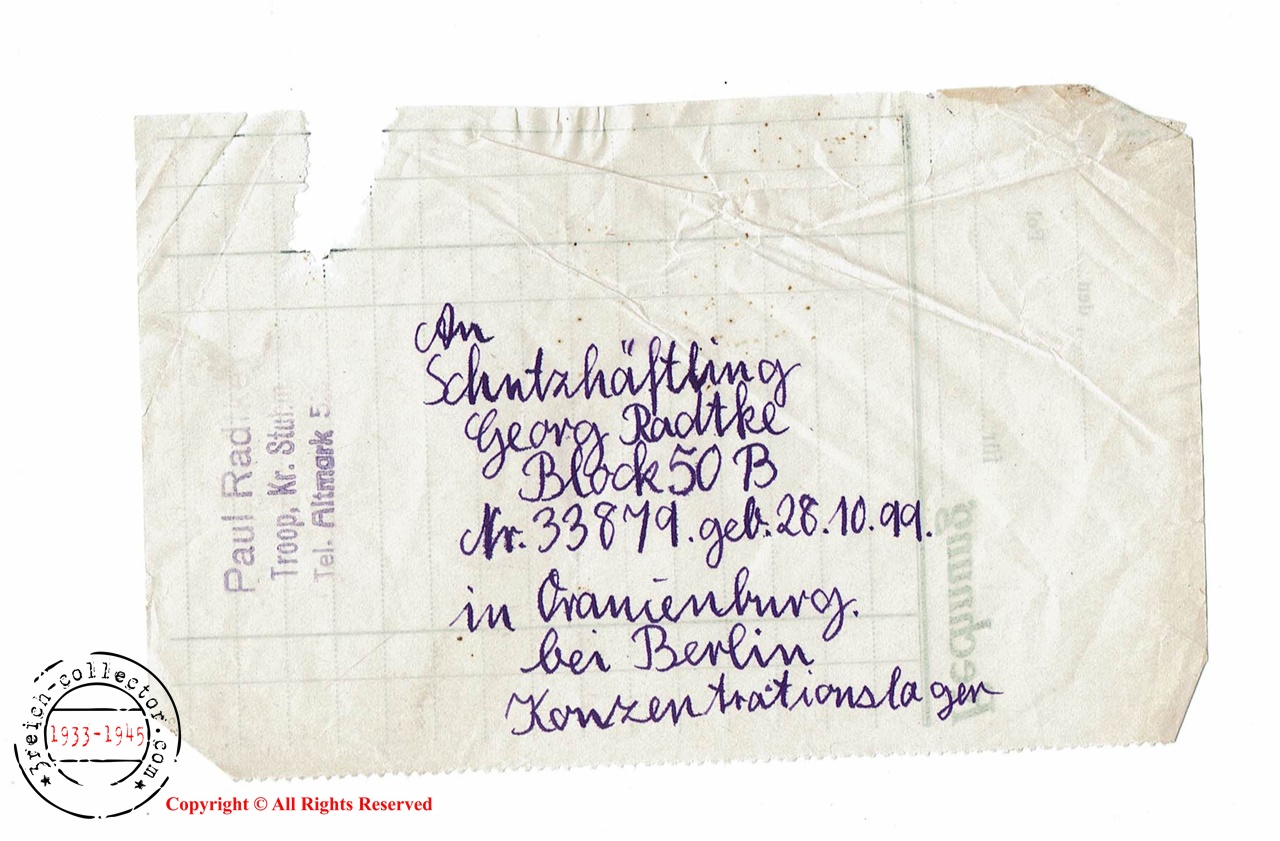 An
Schutzhäftling
Georg Radtke
Block 50 B
Nr. 33879. geb. 28.10.99.
in Oranienburg.
bei Berlin
Konzentrationslager
Paul Radtke
Troop, Kr. Stuhm
Tel. Altmark 5
Rechnung
, den
3reich-collector.com
1933-1945
Copyright © All Rights Reserved